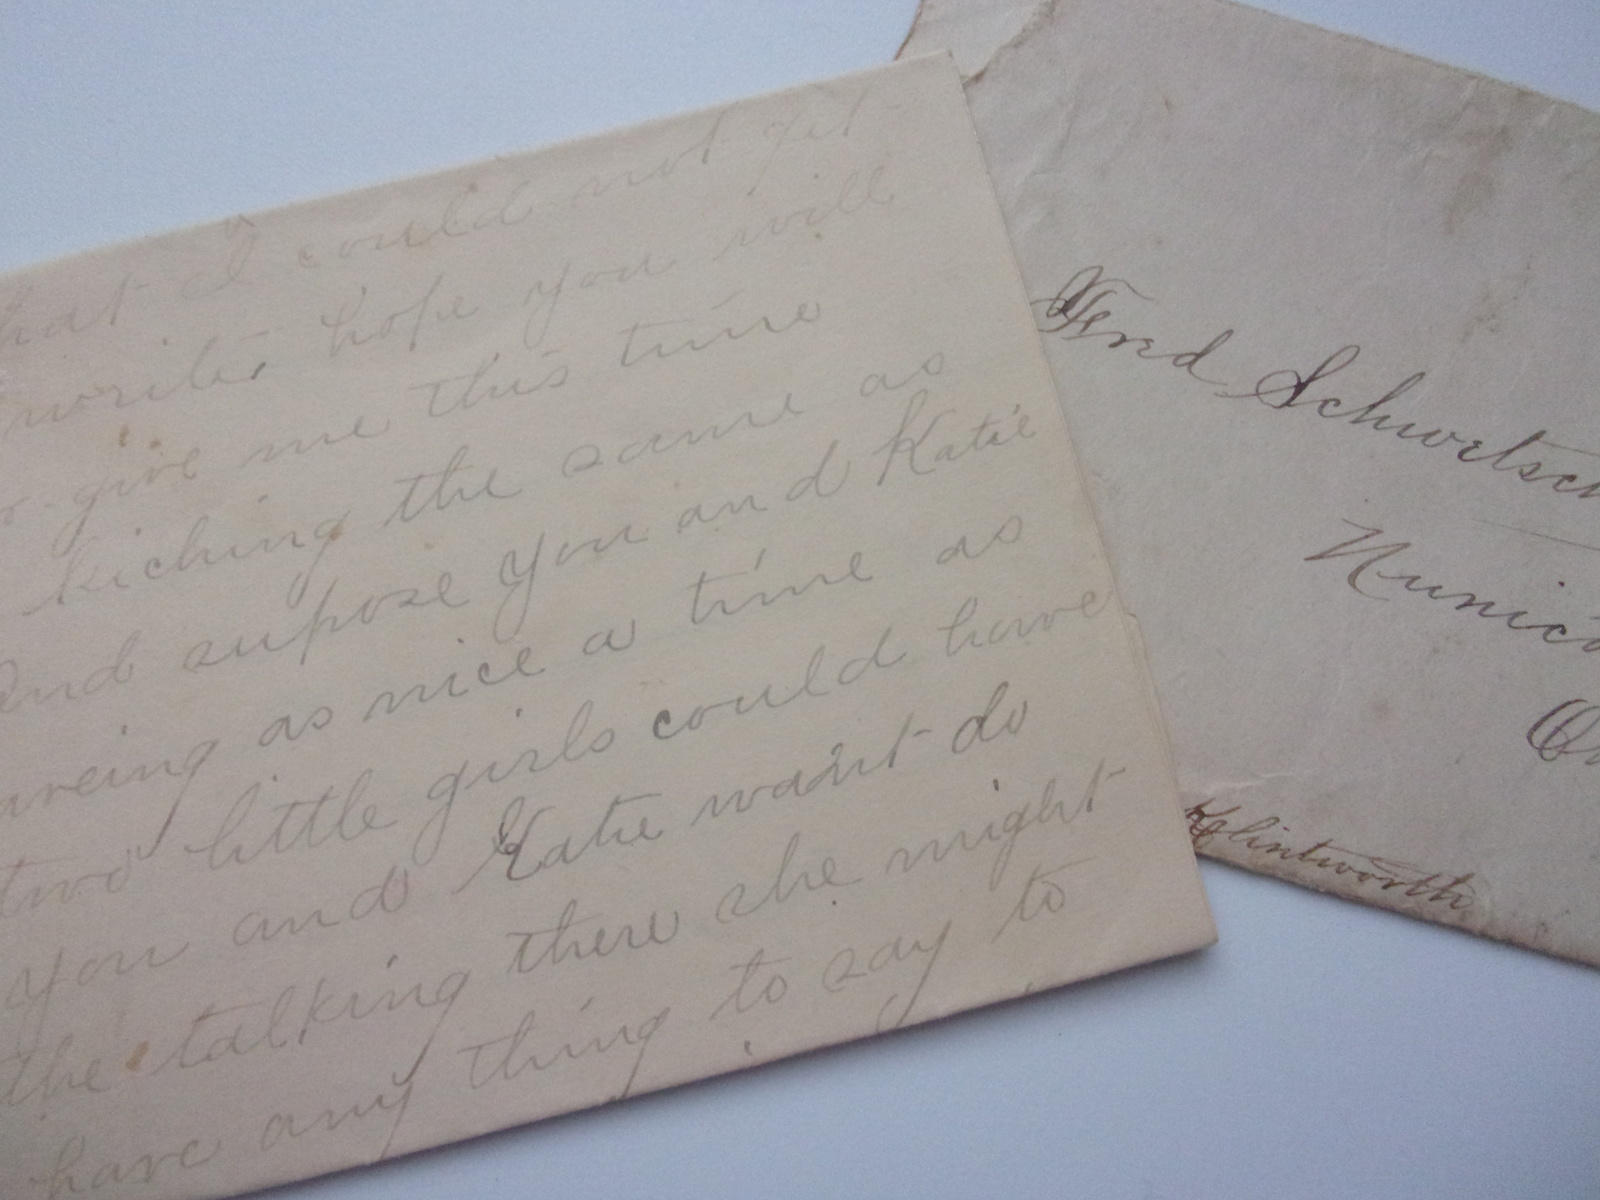 hat I could not get
write, hope you will
give me this time
kiching the same as
and supose you and Katie
areing as nice a time as
two little girls could have
you and Katie want do
the talking there she might
have any thing to say to
Fred Schwetsch
Nunica
Klintworth